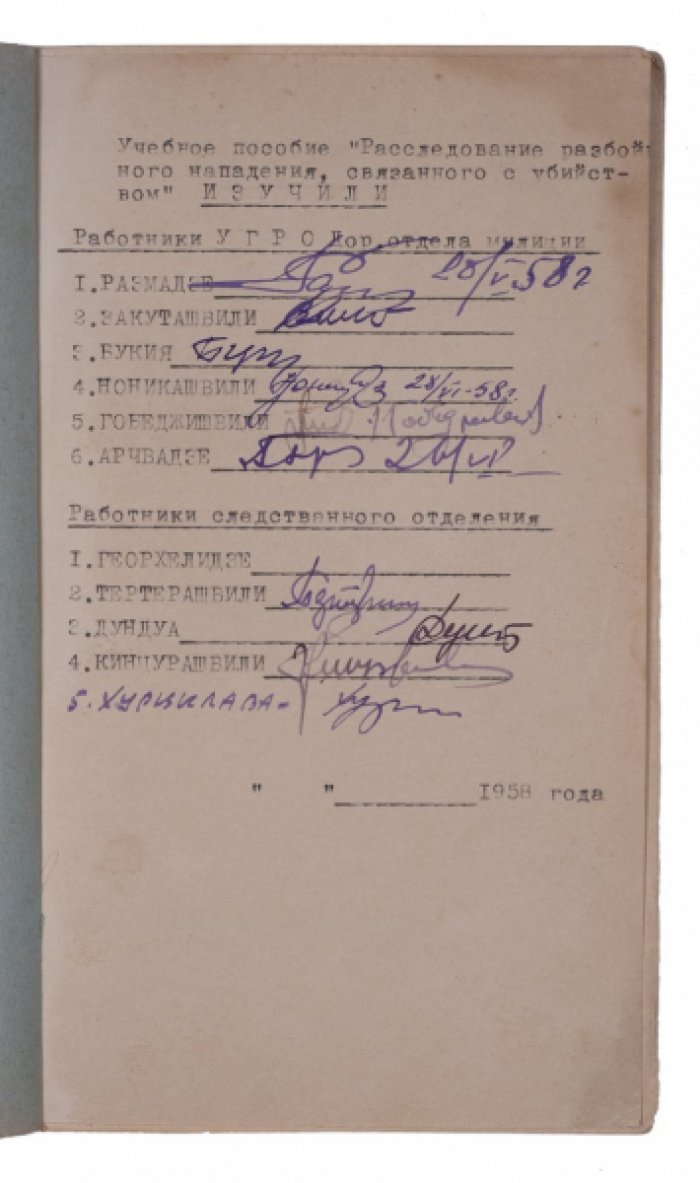 Учебное пособие "Расследование разбой
ного нападения, связанного с убийст-
вом" И З У Ч И Л И
Работники У Г Р О Дор.отдела милиции
1.РАЗМАДЗЕ 28/V-58г
2.ЗАКУТАШВИЛИ
3.БУКИЯ
4.НОНИКАШВИЛИ 28/VI-58г.
5.ГОБЕДЖИШВИЛИ
6.АРЧВАДЗЕ
Работники следственного отделения
1.ГЕОРХЕЛИДЗЕ
2.ТЕРТЕРАШВИЛИ
3.ДУНДУА
4.КИНЦУРАШВИЛИ
5.ХУРЦИЛАВА-
" " 1958 года